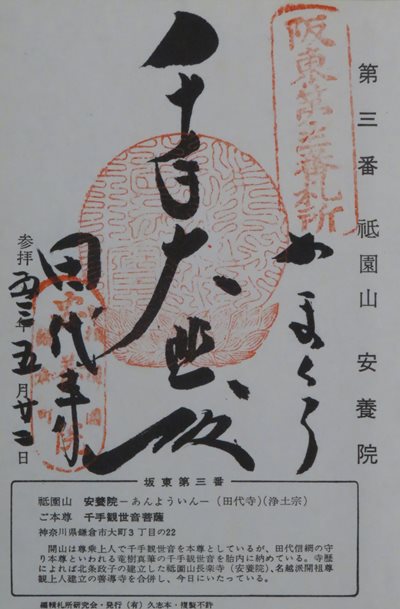 第三番 祗園山 安養院
阪東第三番札所
かまくら
千手大悲殿
田代寺
参拝 五三年 五月廿二日
坂東第三番
祗園山 安養院－あんよういん－(田代寺)(浄土宗)
ご本尊 千手観世音菩薩
神奈川県鎌倉市大町3丁目の22
開山は尊乗上人で千手観世音を本尊としているが、田代信綱の守
り本尊といわれる竜樹真筆の千手観世音を胎内に納めている。寺歴
によれば北条政子の建立した祗園山長楽寺(安養院)、名越派開祖尊
観上人建立の善導寺を合併し、今日にいたっている。
編横札所研究会・発行(有)久志本・複製不許